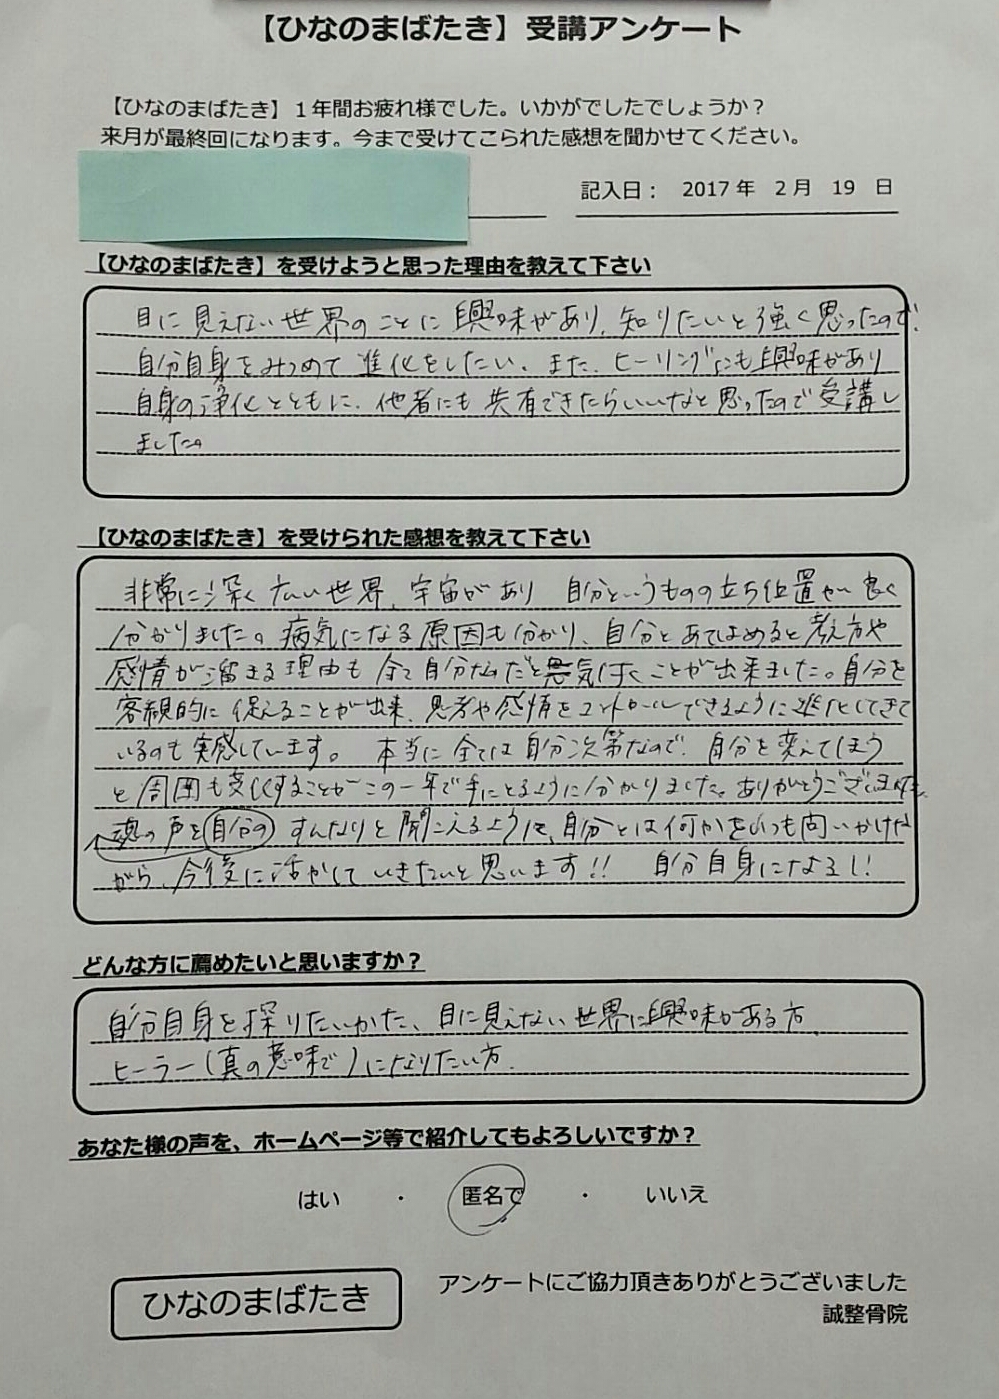 【ひなのまばたき】受講アンケート
【ひなのまばたき】１年間お疲れ様でした。いかがでしたでしょうか？
来月が最終回になります。今まで受けてこられた感想を聞かせてください。
記入日： 2017 年 2 月 19 日
【ひなのまばたき】を受けようと思った理由を教えて下さい
目に見えない世界のことに興味があり、知りたいと強く思ったので。
自分自身をみつめて進化をしたい。また、ヒーリングにも興味があり
自身の浄化とともに、他者にも共有できたらいいなと思ったので受講し
ました。
【ひなのまばたき】を受けられた感想を教えて下さい
非常に深く広い世界、宇宙があり 自分というものの立ち位置が良く
分かりました。病気になる原因も分かり、自分とあてはめると考え方や
感情が溜まる理由も全て自分なんだと気付くことが出来ました。自分を
客観的に捉えることが出来、思考や感情をコントロールできるように進化してきて
いるのも実感しています。 本当に全ては自分次第なので、自分を変えてほう
と周囲も変化することがこの一年で手にとるように分かりました。ありがとうございます。
魂の声を自分の すんなりと聞こえるように、自分とは何かをいつも問いかけな
がら、今後に活かしていきたいと思います!! 自分自身になるし!
どんな方に薦めたいと思いますか？
自分自身を探りたいかた、目に見えない世界に興味がある方、
ヒーラー(真の意味で)になりたい方。
あなた様の声を、ホームページ等で紹介してもよろしいですか？
はい ・ 匿名で ・ いいえ
アンケートにご協力頂きありがとうございました
ひなのまばたき
誠整骨院